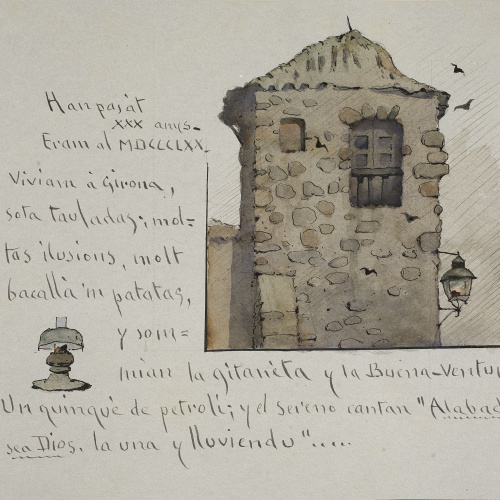 Han pasat
XXX anys-
Eram al MDCCCLXX.
Viviam à Girona,
sota tauladas; mol=
tas ilusions, molt
bacallà 'm patatas,
y som=
nian la gitaneta y la Buena-Ventur
Un quinqué de petroli; y el sereno cantan "Alabad
sea Dios. la una y lluviendo".....